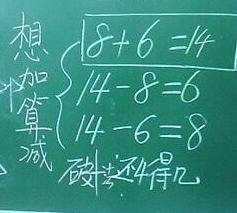 想加算减
8+6=14
14-8=6
14-6=8
破十法还得几